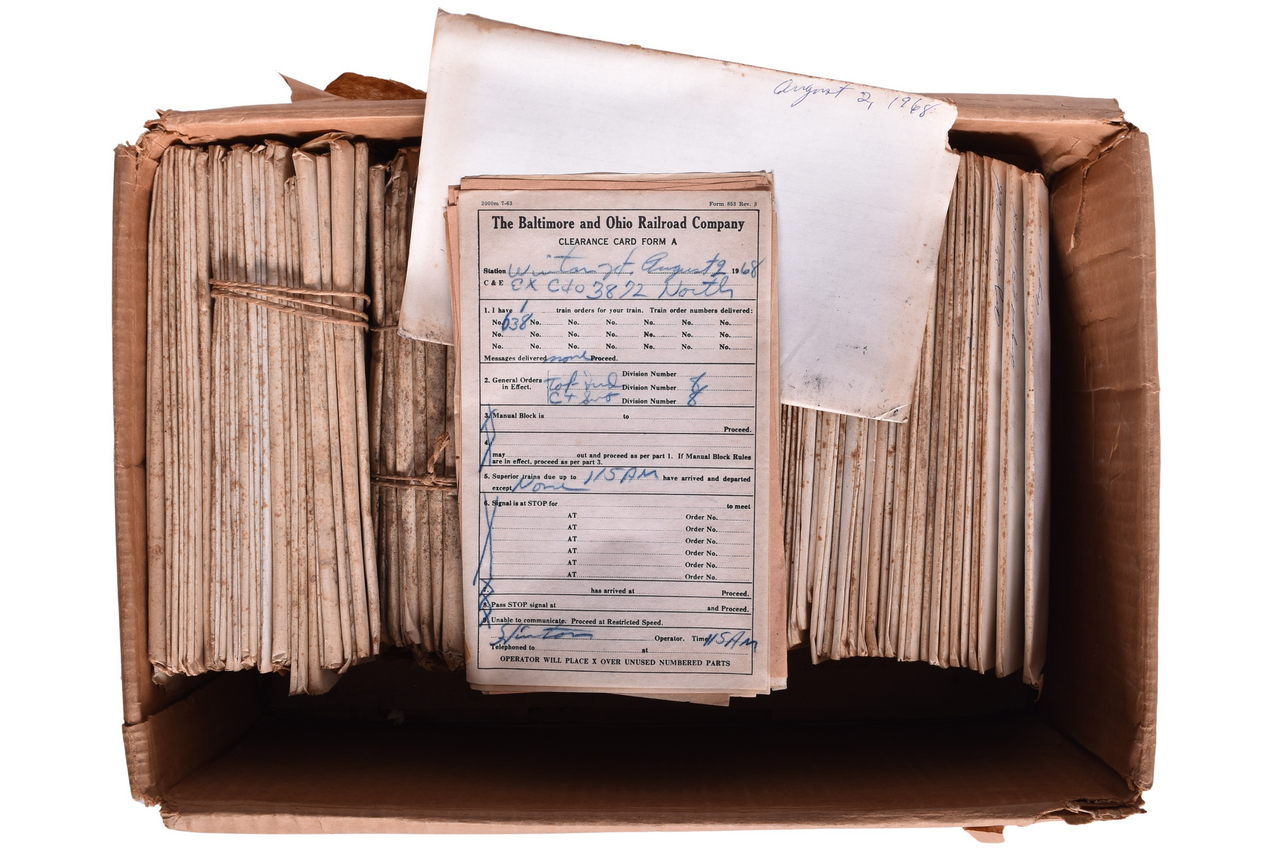 August 2, 1968
2000m 7-63 Form 853 Rev. 3
The Baltimore and Ohio Railroad Company
CLEARANCE CARD FORM A
Station Winton Jct. August 2 1968
C & E EX C&O 3872 North
1. I have 1 train orders for your train. Train order numbers delivered:
No. 638 No. No. No. No. No. No.
No. No. No. No. No. No. No.
No. No. No. No. No. No. No.
Messages delivered none Proceed.
Division Number
2. General Orders in Effect. Tol Ind Division Number 8
Division Number 8
3. Manual Block is to
Proceed.
4.
may out and proceed as per part 1. If Manual Block Rules
are in effect, proceed as per part 3.
5. Superior trains due up to 115 AM have arrived and departed
except None
6. Signal is at STOP for to meet
AT Order No.
AT Order No.
AT Order No.
AT Order No.
AT Order No.
AT Order No.
7. has arrived at Proceed.
8. Pass STOP signal at and Proceed.
9. Unable to communicate. Proceed at Restricted Speed.
Operator. Time 115 AM
Telephoned to at
OPERATOR WILL PLACE X OVER UNUSED NUMBERED PARTS